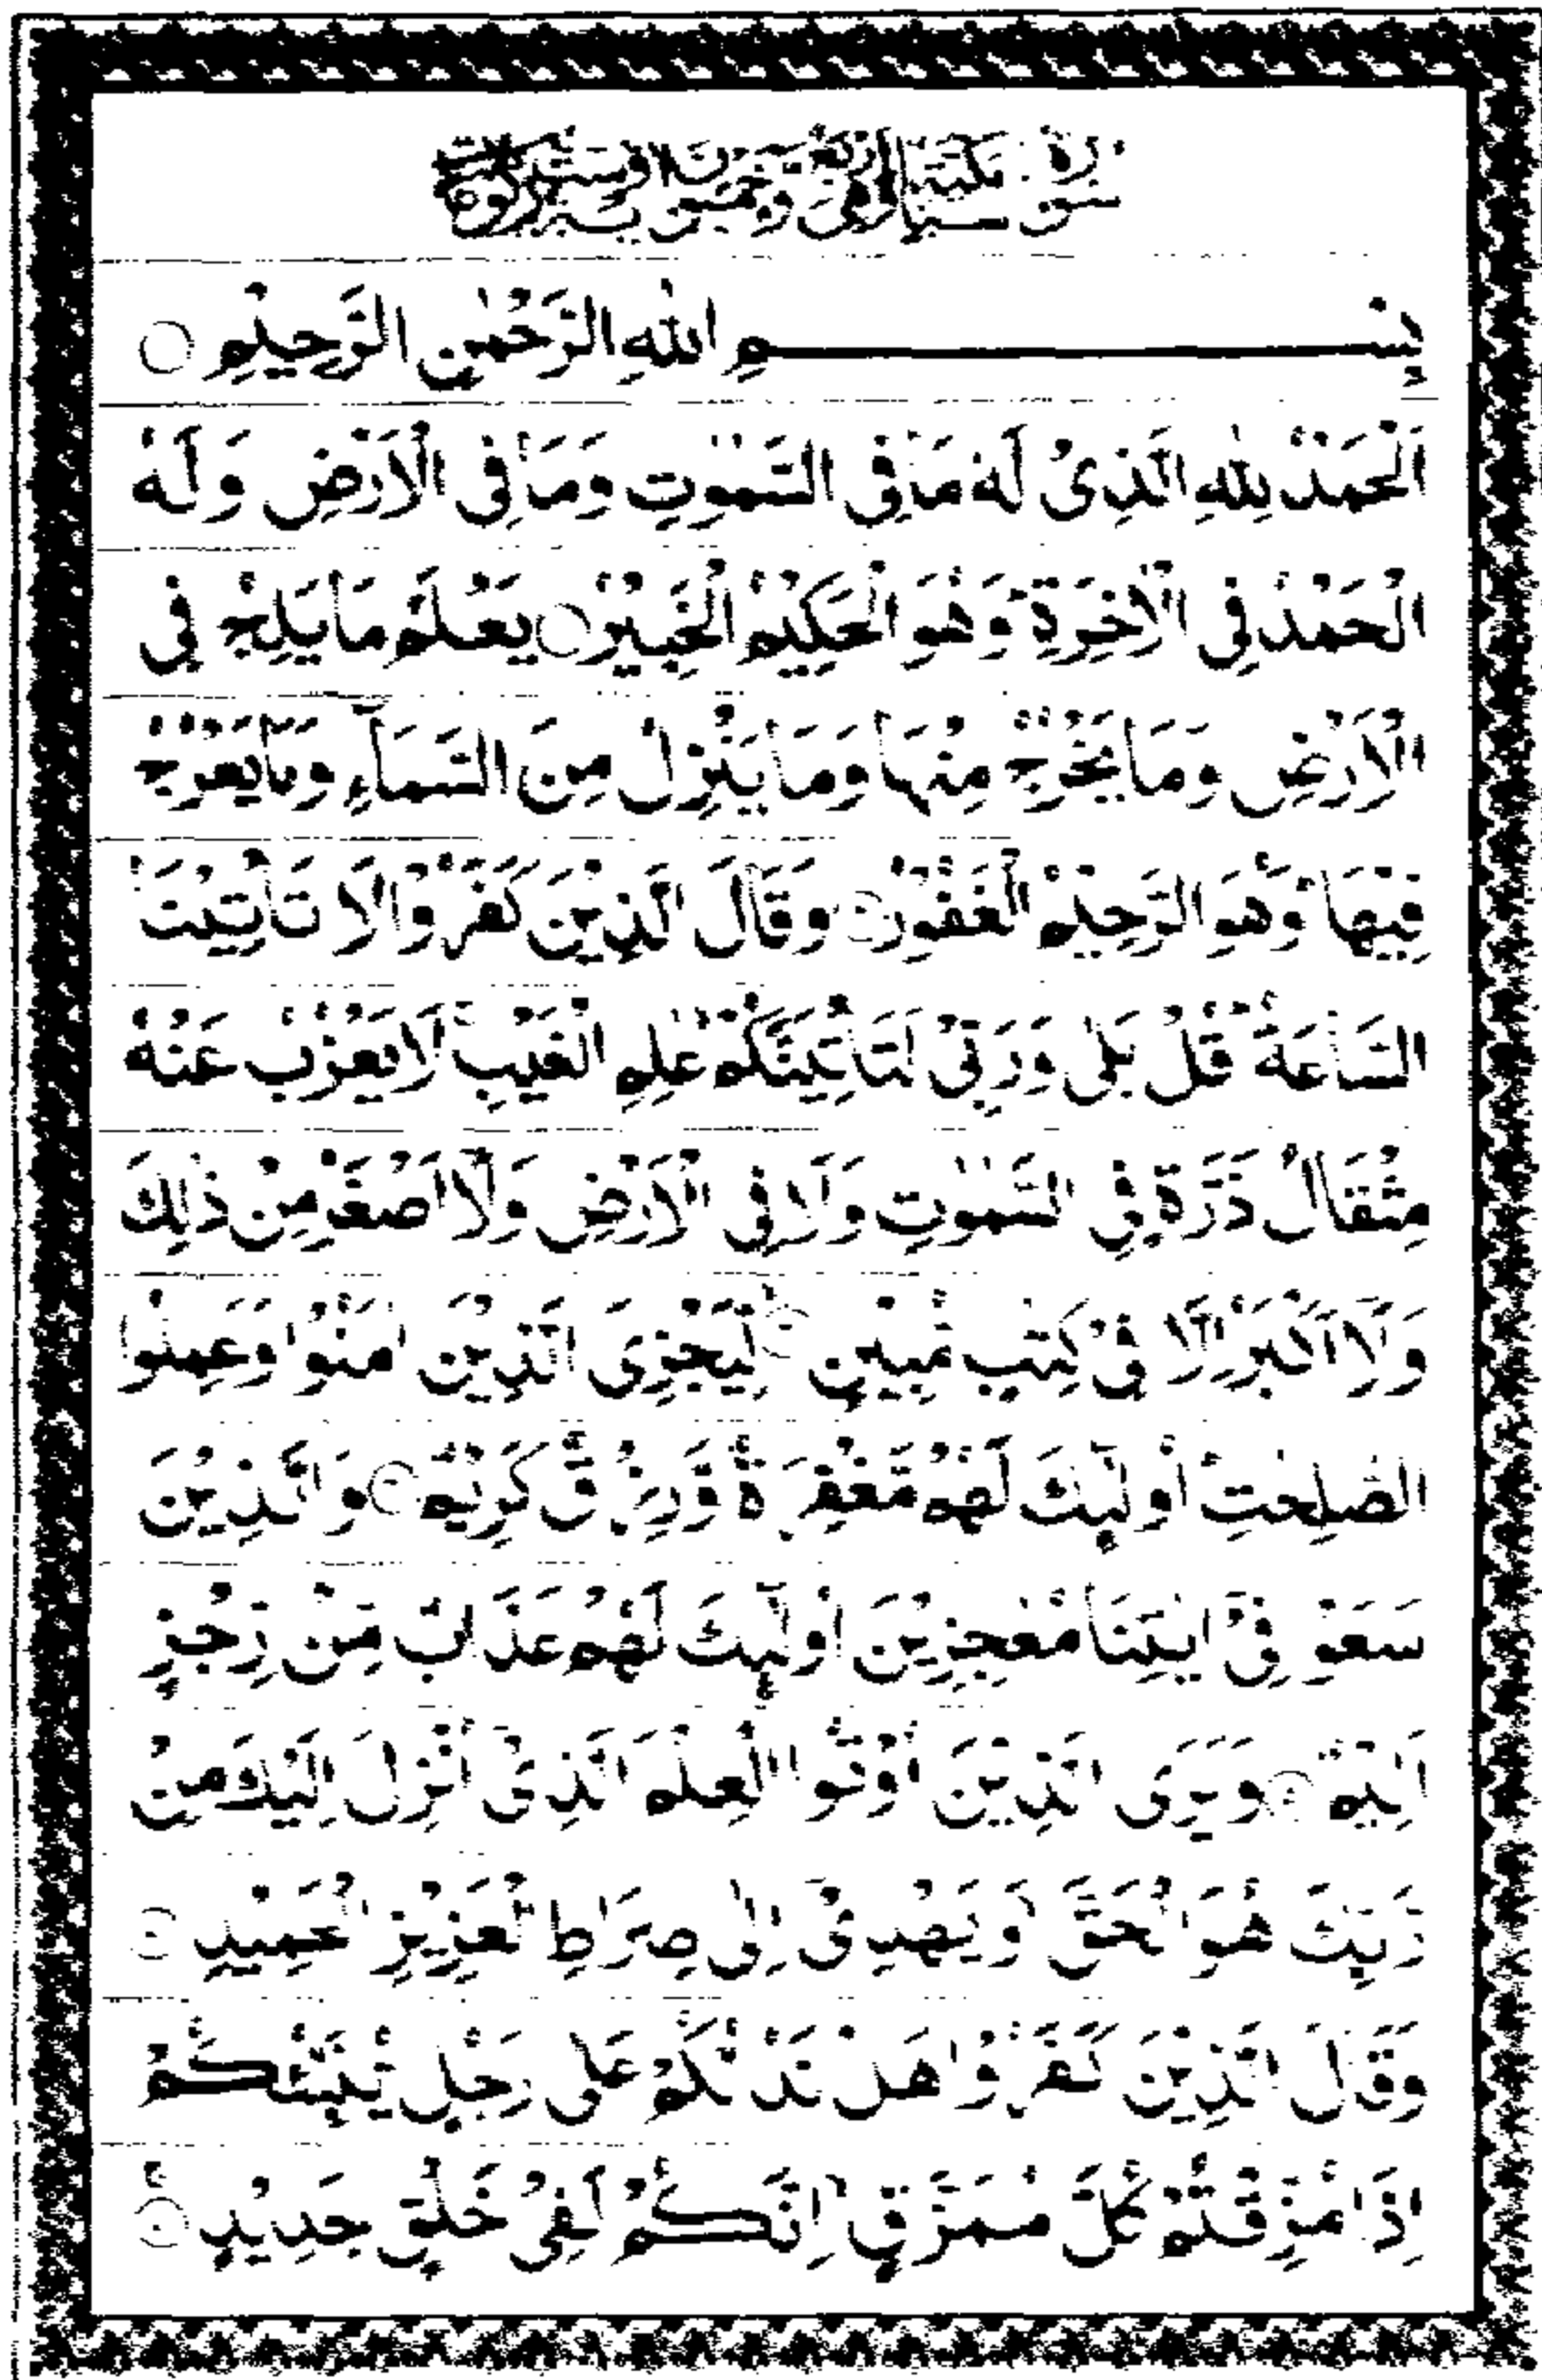 سورة سبا مكية وهى اربع وخمسون اية وست ركوعات
بِسْمِ اللهِ الرَّحْمٰنِ الرَّحِيْمِ ○
اَلْحَمْدُ لِلّٰهِ الَّذِىْ لَهٗ مَا فِى السَّمٰوٰتِ وَمَا فِى الْاَرْضِ وَلَهُ
الْحَمْدُ فِى الْاٰخِرَةِ ؕ وَهُوَ الْحَكِيْمُ الْخَبِيْرُ ○ يَعْلَمُ مَا يَلِجُ فِى
الْاَرْضِ وَمَا يَخْرُجُ مِنْهَا وَمَا يَنْزِلُ مِنَ السَّمَآءِ وَمَا يَعْرُجُ
فِيْهَا ؕ وَهُوَ الرَّحِيْمُ الْغَفُوْرُ ○ وَقَالَ الَّذِيْنَ كَفَرُوْا لَا تَاْتِيْنَا
السَّاعَةُ ؕ قُلْ بَلٰى وَرَبِّىْ لَتَاْتِيَنَّكُمْ ۙ عٰلِمِ الْغَيْبِ ۚ لَا يَعْزُبُ عَنْهُ
مِثْقَالُ ذَرَّةٍ فِى السَّمٰوٰتِ وَلَا فِى الْاَرْضِ وَلَآ اَصْغَرُ مِنْ ذٰلِكَ
وَلَآ اَكْبَرُ اِلَّا فِىْ كِتٰبٍ مُّبِيْنٍ ○ لِّيَجْزِىَ الَّذِيْنَ اٰمَنُوْا وَعَمِلُوا
الصّٰلِحٰتِ ؕ اُولٰٓئِكَ لَهُمْ مَّغْفِرَةٌ وَّرِزْقٌ كَرِيْمٌ ○ وَالَّذِيْنَ
سَعَوْ فِىْٓ اٰيٰتِنَا مُعٰجِزِيْنَ اُولٰٓئِكَ لَهُمْ عَذَابٌ مِّنْ رِّجْزٍ
اَلِيْمٌ ○ وَيَرَى الَّذِيْنَ اُوْتُوا الْعِلْمَ الَّذِىْٓ اُنْزِلَ اِلَيْكَ مِنْ
رَّبِّكَ هُوَ الْحَقَّ ۙ وَيَهْدِىْٓ اِلٰى صِرَاطِ الْعَزِيْزِ الْحَمِيْدِ ○
وَقَالَ الَّذِيْنَ كَفَرُوْا هَلْ نَدُلُّكُمْ عَلٰى رَجُلٍ يُّنَبِّئُكُمْ
اِذَا مُزِّقْتُمْ كُلَّ مُمَزَّقٍ ۙ اِنَّكُمْ لَفِىْ خَلْقٍ جَدِيْدٍ ○